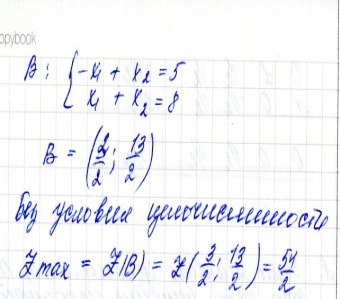 opybook
B: { -x₁ + x₂ = 5
x₁ + x₂ = 8
B = (3/2; 13/2)
Без условия целочисленности
Zmax = Z(B) = Z(3/2; 13/2) = 54/2